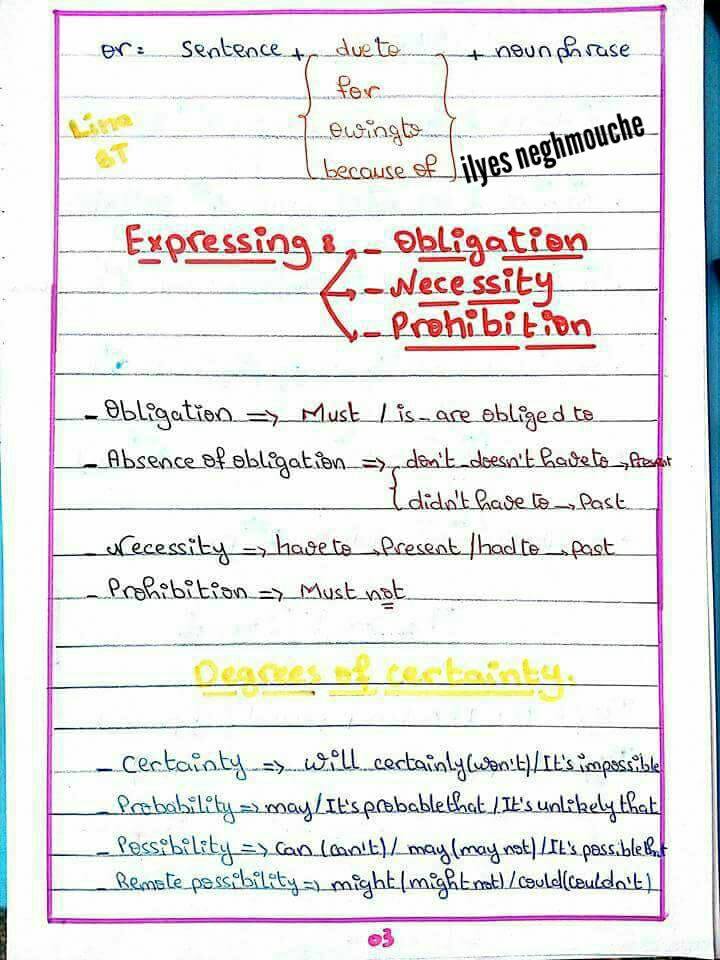 or: sentence + due to + noun phrase
for
owing to
because of
Lina
BT
ilyes neghmouche
Expressing : - Obligation
- Necessity
- Prohibition
- Obligation => Must / is - are obliged to
- Absence of obligation => don't - doesn't have to → Present
didn't have to → Past
- Necessity => have to → Present / had to → past
- Prohibition => Must not
Degrees of certainty.
- Certainty => will certainly (won't) / It's impossible
- Probability => may / It's probable that / It's unlikely that
- Possibility => can (can't) / may (may not) / It's possible that
- Remote possibility => might (might not) / could (couldn't)
03